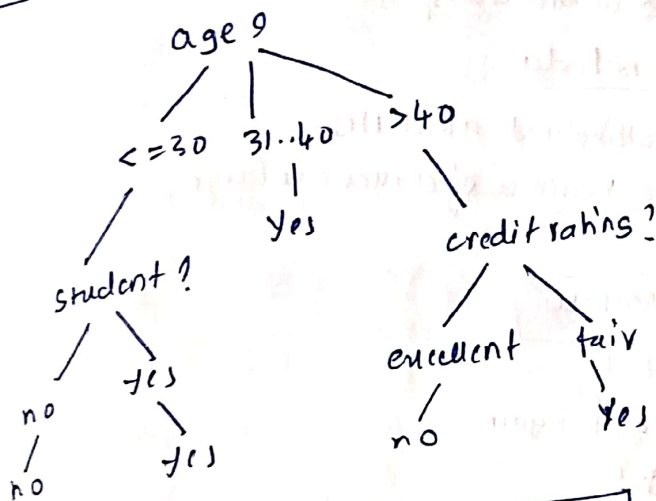 age ?
<=30 31..40 >40
yes
credit rating?
student ?
excellent fair
yes
no
yes
no
yes
no